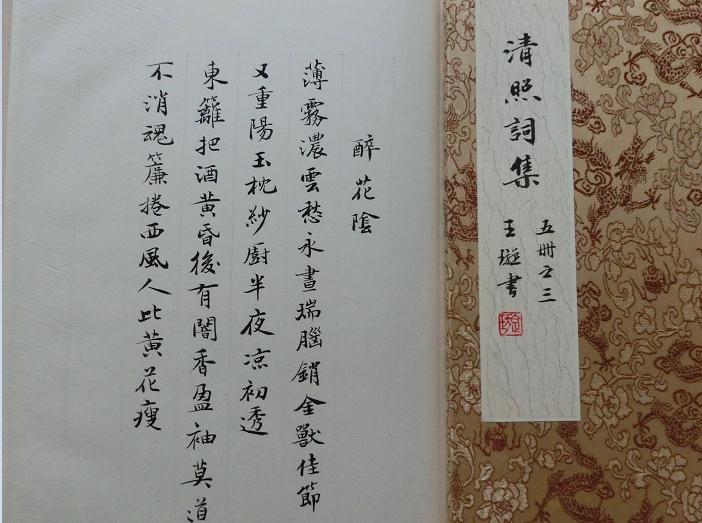 清照詞集
五冊之三
王璇書
醉花陰
薄霧濃雲愁永晝瑞腦銷金獸佳節
又重陽玉枕紗廚半夜涼初透
東籬把酒黃昏後有闇香盈袖莫道
不消魂簾捲西風人比黃花瘦